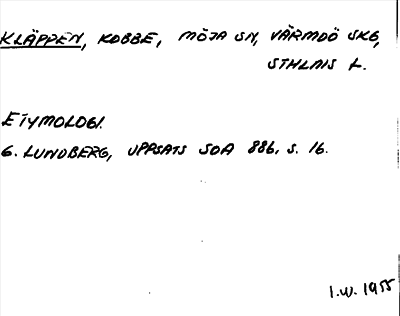 KLÄPPEN, KOBBE, MÖJA SN, VÄRMDÖ SKG,
STHLMS L.
ETYMOLOGI.
G. LUNDBERG, UPPSATS SOA 886, S. 16.
I.W. 1955